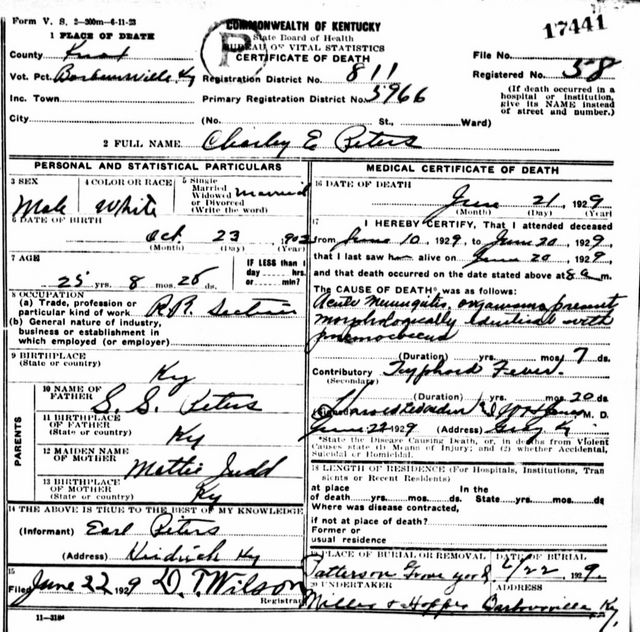 Form V. S. 2—300m—6-11-23
COMMONWEALTH OF KENTUCKY
17441
1 PLACE OF DEATH
State Board of Health
BUREAU OF VITAL STATISTICS
CERTIFICATE OF DEATH
P
County Knox
File No.
Vot. Pct. Barbourville, Ky
Registration District No. 811
Registered No. 58
Inc. Town
Primary Registration District No. 5966
(If death occurred in a hospital or institution, give its NAME instead of street and number.)
City (No. St., Ward)
2 FULL NAME Charley E Peters
PERSONAL AND STATISTICAL PARTICULARS
3 SEX
Male
4 COLOR OR RACE
White
5 Single
Married
Widowed
or Divorced
(Write the word)
Married
6 DATE OF BIRTH
Oct. 23
(Month) (Day) (Year)
7 AGE
25 yrs. 8 mos.
IF LESS than 1
day hrs.
or min.?
8 OCCUPATION
(a) Trade, profession or
particular kind of work R.R. Section
(b) General nature of industry,
business or establishment in
which employed (or employer)
9 BIRTHPLACE
(State or country)
Ky
PARENTS
10 NAME OF
FATHER
S. S. Peters
11 BIRTHPLACE
OF FATHER
(State or country)
Ky
12 MAIDEN NAME
OF MOTHER
Mattie Judd
13 BIRTHPLACE
OF MOTHER
(State or country)
Ky
14 THE ABOVE IS TRUE TO THE BEST OF MY KNOWLEDGE
(Informant) Earl Peters
(Address) Ky
15
Filed June 22 1929 D. T. Wilson
Registrar
11—3184
MEDICAL CERTIFICATE OF DEATH
16 DATE OF DEATH
June 21, 1929
(Month) (Day) (Year)
17
I HEREBY CERTIFY, That I attended deceased
from June 10, 1929, to June 20, 1929,
that I last saw him alive on June 20, 1929,
and that death occurred on the date stated above at 8 a m.
The CAUSE OF DEATH* was as follows:
Acute Meningitis, organisms present
morphologically identical with
pneumococcus
(Duration) yrs. mos. 7 ds.
Contributory Typhoid Fever.
(Secondary)
(Duration) yrs. mos. 20 ds.
(Signed) M. D.
June 22 1929 (Address)
*State the Disease Causing Death, or, in deaths from Violent
Causes state (1) Means of Injury; and (2) whether Accidental,
Suicidal or Homicidal.
18 LENGTH OF RESIDENCE (For Hospitals, Institutions, Transients or Recent Residents)
at place
of death yrs. mos. ds.
In the
State yrs. mos. ds.
Where was disease contracted,
if not at place of death?
Former or
usual residence
19 PLACE OF BURIAL OR REMOVAL
Patterson Grove yard
DATE OF BURIAL
6/22, 1929.
20 UNDERTAKER
ADDRESS
Barbourville Ky.